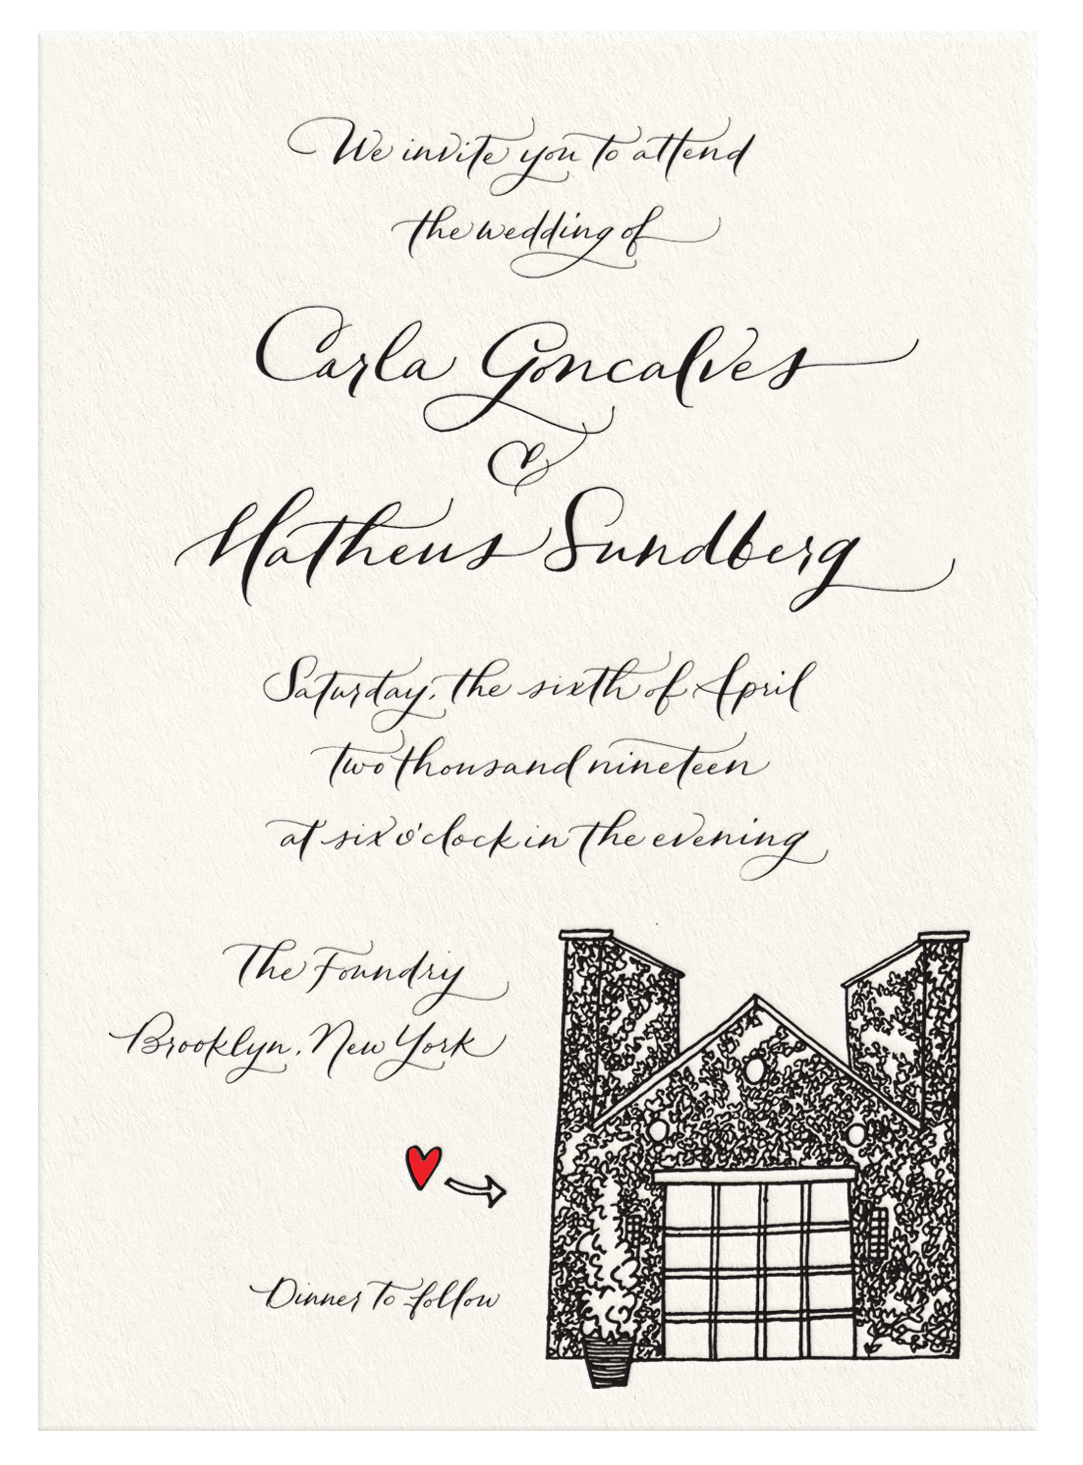 We invite you to attend
the wedding of
Carla Goncalves
&
Matheus Sundberg
Saturday, the sixth of April
two thousand nineteen
at six o'clock in the evening
The Foundry
Brooklyn, New York
Dinner to follow